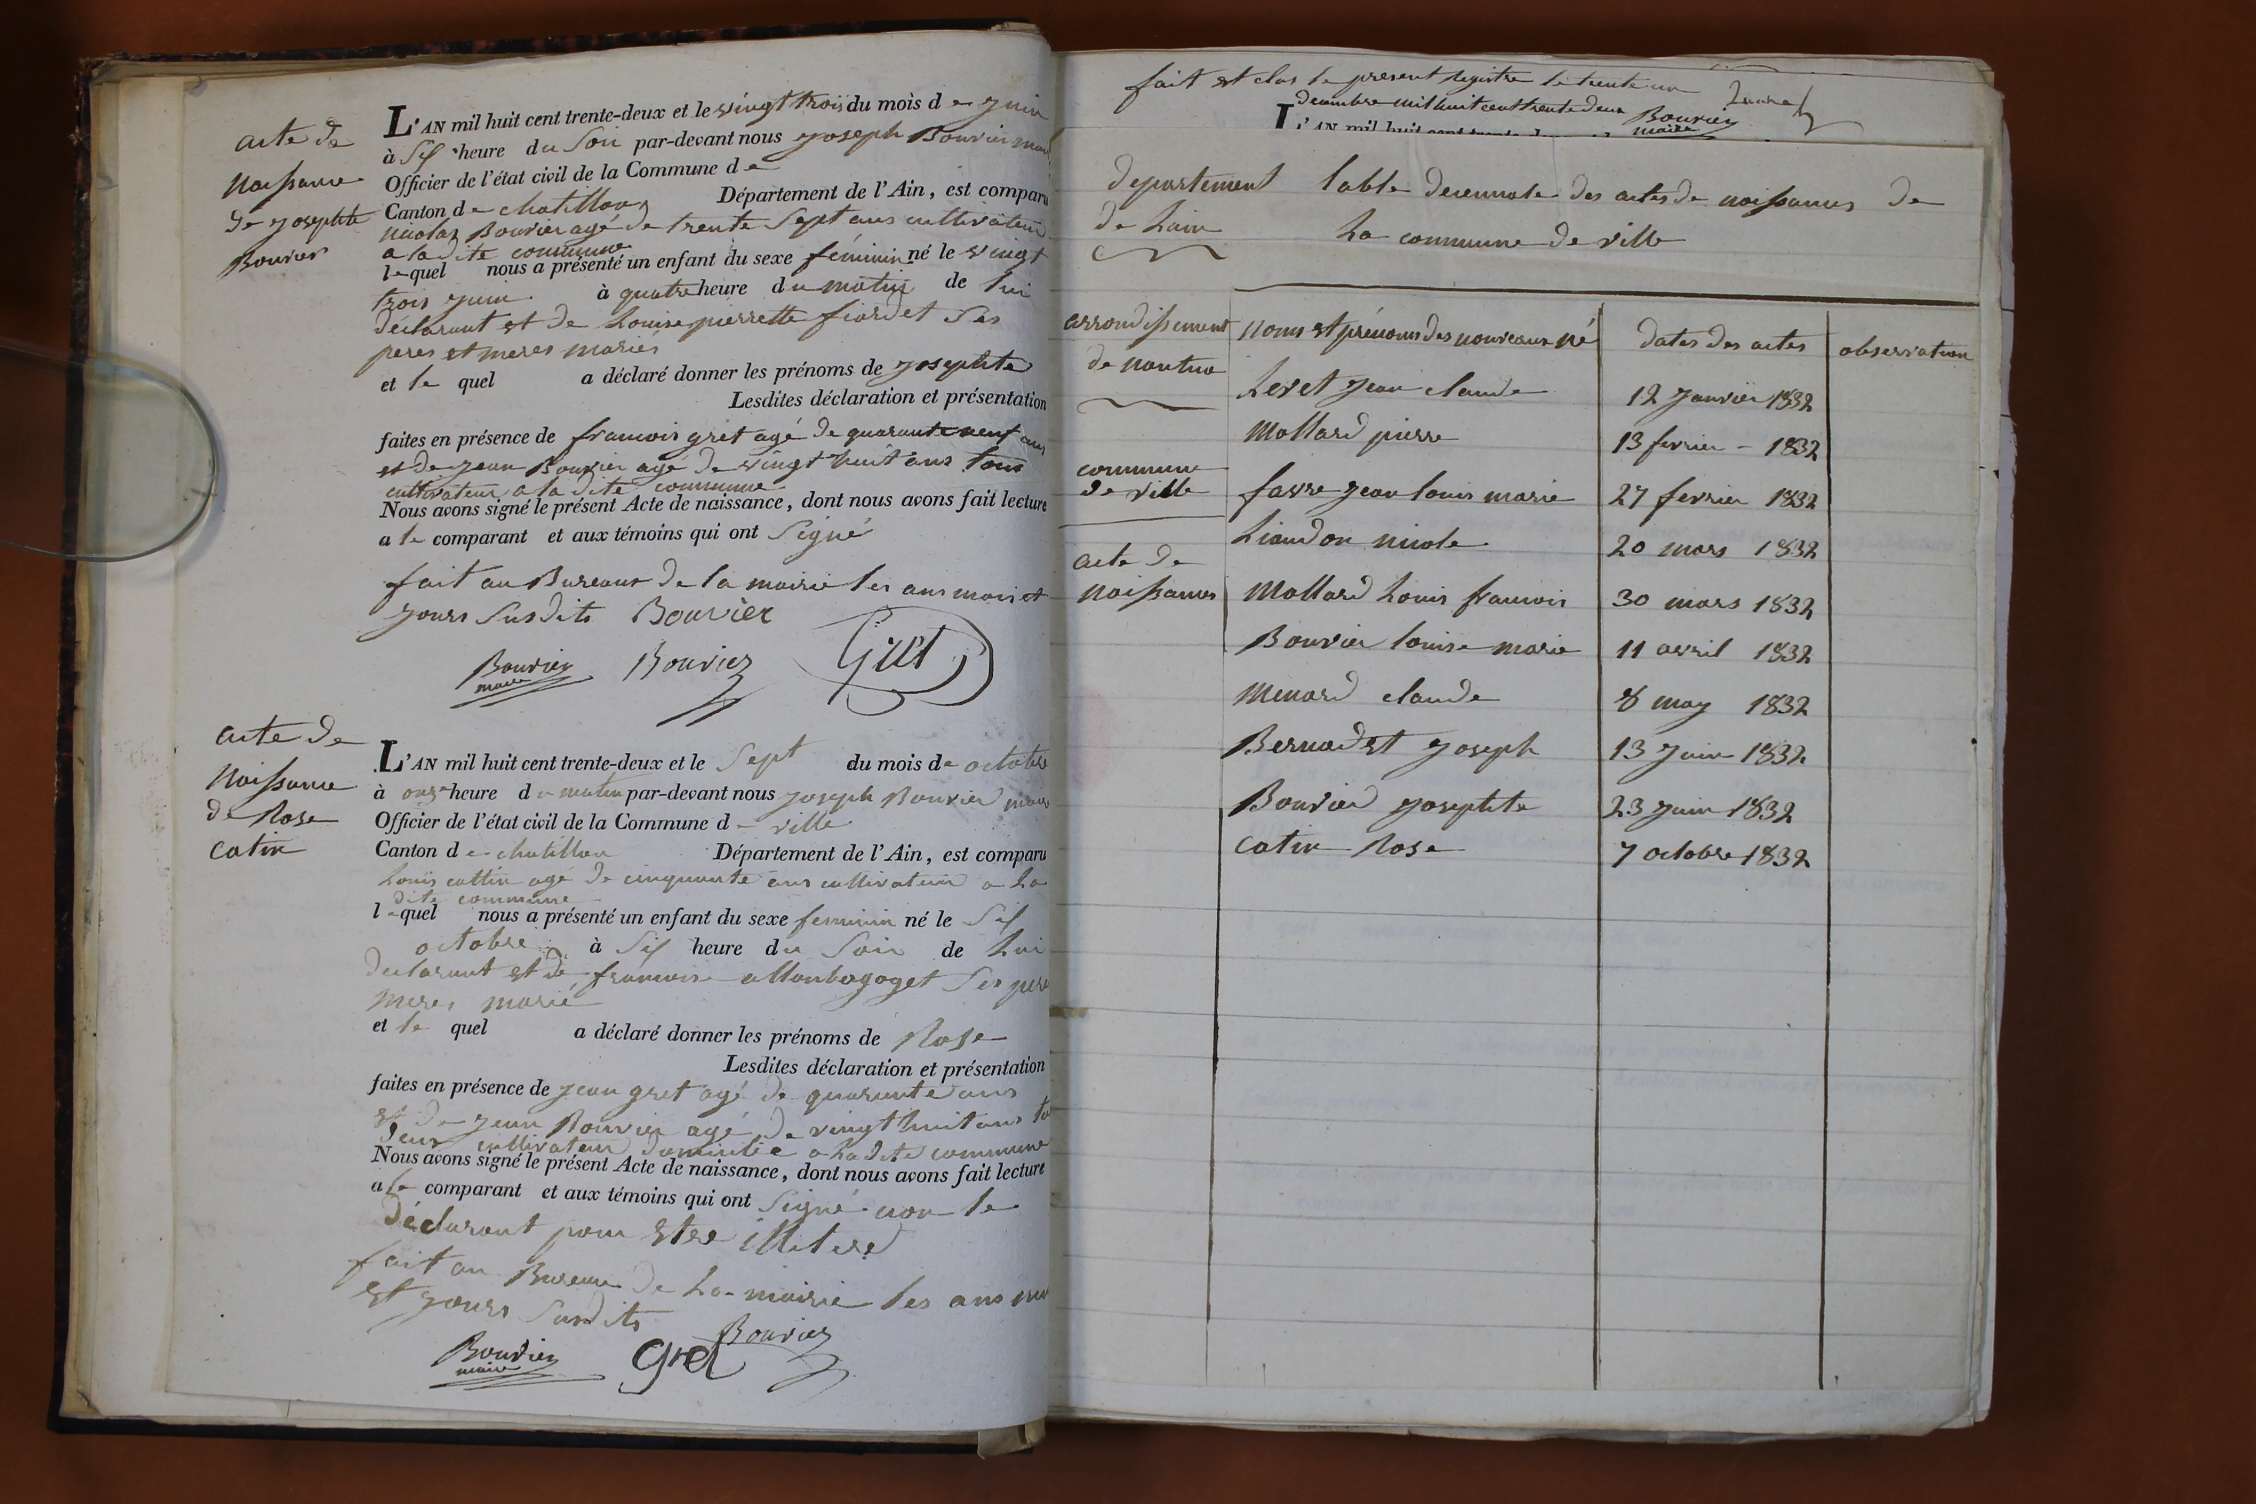 acte de
Naissance
de Josephte
Bouvier
L'AN mil huit cent trente-deux et le vingt trois du mois de Juin
à Six heure du Soir par-devant nous Joseph Bouvier maire
Officier de l'état civil de la Commune de
Canton de chatillon Département de l'Ain, est comparu
Nicolas Bouvier agé de trente Sept ans cultivateur
a la dite commune
lequel nous a présenté un enfant du sexe féminin né le vingt
trois Juin à quatre heure du matin de lui
déclarant et de Louise pierrette fiardet Ses
peres et meres mariés
et le quel a déclaré donner les prénoms de Josephte
Lesdites déclaration et présentation
faites en présence de francois gret agé de quarante neuf ans
et de Jean Bouvier agé de vingt huit ans tous
cultivateur a la dite commune
Nous avons signé le présent Acte de naissance, dont nous avons fait lecture
a le comparant et aux témoins qui ont Signé
fait au Bureaux de la mairie les ans mois et
Jours Susdits Bouvier
Bouvier Bouvier Gret
maire
acte de
Naissance
de Rose
Catin
L'AN mil huit cent trente-deux et le Sept du mois de octobre
à onze heure du matin par-devant nous Joseph Bouvier maire
Officier de l'état civil de la Commune de ville
Canton de chatillon Département de l'Ain, est comparu
Louis cattin agé de cinquante ans cultivateur a la
dite commune
lequel nous a présenté un enfant du sexe feminin né le Six
octobre à Six heure du Soir de Lui
declarant et de francoise allonbogoget Ses pere
meres marié
et le quel a déclaré donner les prénoms de Rose
Lesdites déclaration et présentation
faites en présence de Jean gret agé de quarante ans
et de Jean Bouvier agé de vingt huit ans
deux cultivateur domicilié a la dite commune
Nous avons signé le présent Acte de naissance, dont nous avons fait lecture
a le comparant et aux témoins qui ont Signé non le
déclarant pour Etre illiteré
fait au Bureau de La mairie les ans
et Jours Susdits
Bouvier gret Bouvier
maire
fait et clos le present registre le trente un
decembre mil huit cent trente deux Bouvier
maire
L'AN mil huit cent trente
departement table decennale des actes de naissances de
de Lain La commune de ville
arrondissement Noms et prénoms des nouveaux né dates des actes observation
de nantua
Levet Jean claude 12 Janvier 1832
Mollard pierre 13 fevrier - 1832
commune
de ville favre Jean louis marie 27 fevrier 1832
Liaudon nicole 20 mars 1832
acte de
Naissances Mollard Louis francois 30 mars 1832
Bouvier louise marie 11 avril 1832
Menard claude 8 may 1832
Bernadet Joseph 13 Juin 1832
Bouvier Josephte 23 Juin 1832
Catin Rose 7 octobre 1832